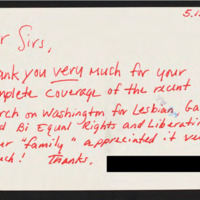 5.1
r Sirs,
ank you very much for your
mplete coverage of the recent
rch on Washington for Lesbian, Ga
d Bi Equal Rights and Liberation
ur "family" appreciated it ve
uch! Thanks.